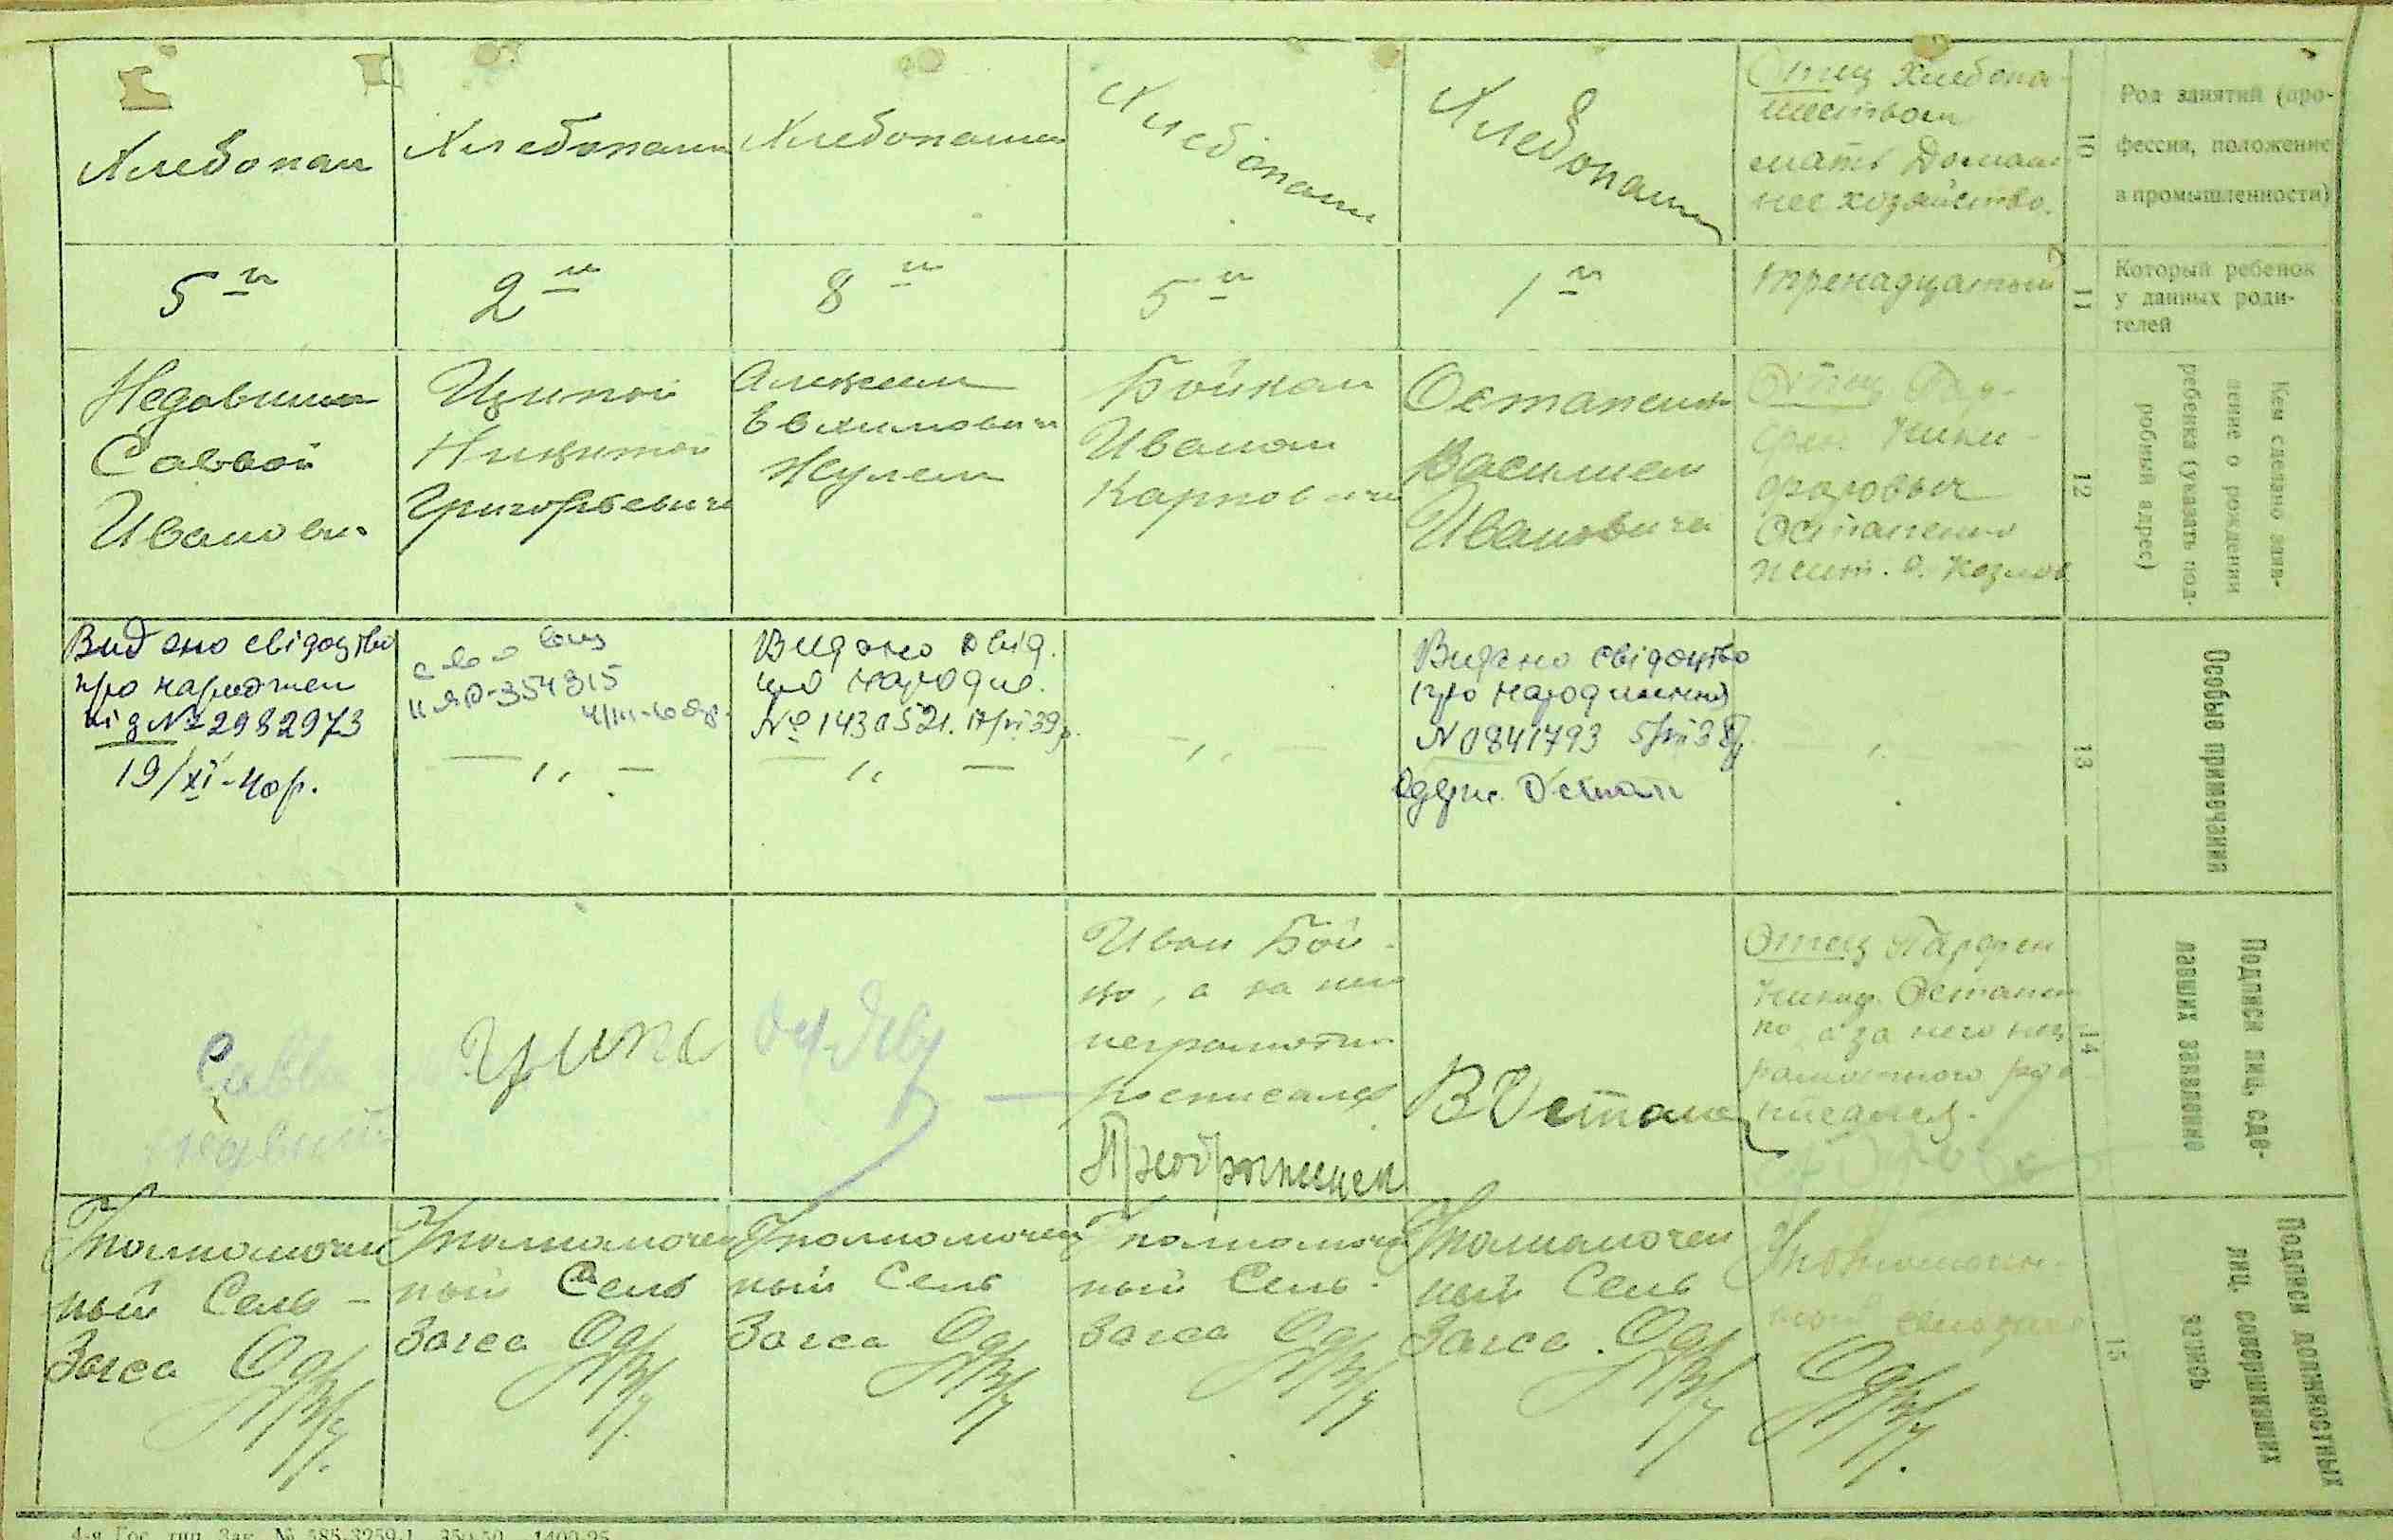 Хлебопаш
Хлебопаш
Хлебопаш
Хлебопаш
Хлебопаш
Отец хлебопа-
шеством
мать Домаш
нее хозяйство.
10
Род занятий (про-
фессия, положение
в промышленности)
5й
2й
8й
5й
1й
тренадцатый
11
Который ребенок
у данных роди-
телей
Недавним
Саввой
Иванови
Ципой
Никитой
Григорьевичем
Алексеем
Евхимовичем
Жулем
Бойком
Иваном
Карповичем
Остапенко
Василием
Ивановичем
Отец
Остапенко
жит. с. Козлов
12
Кем сделано заяв-
ление о рождении
ребенка (указать под-
робный адрес)
Видано свідоцтво
про народжен
від № 2982973
19/XI-40р.
354315
— „ —
Видано свід.
про народже.
№ 1430521.
— „ —
— „ —
Видано свідоцтво
про народження
N 0841793
Остап
— „ —
13
Особые примечания
Савва
Ципа
Иван Бой-
ко, а за него
неграмотн
росписался
В Остапе
Отец Парфен
Никиф. Остапен
ко, а за него нег
рамотного рос
писался.
14
Подписи лиц, сде-
лавших заявление
Уполномочен
ный Сель-
Загса
Уполномочен
ный Сель
Загса
Уполномочен
ный Сель
Загса
Уполномочен
ный Сель-
Загса
Уполномочен
ный Сель
Загса
Уполномочен-
ный сельзагса
15
Подписи должностных
лиц, совершивших
запись
4-я Гос. тип. Зак. № 585-3259-1